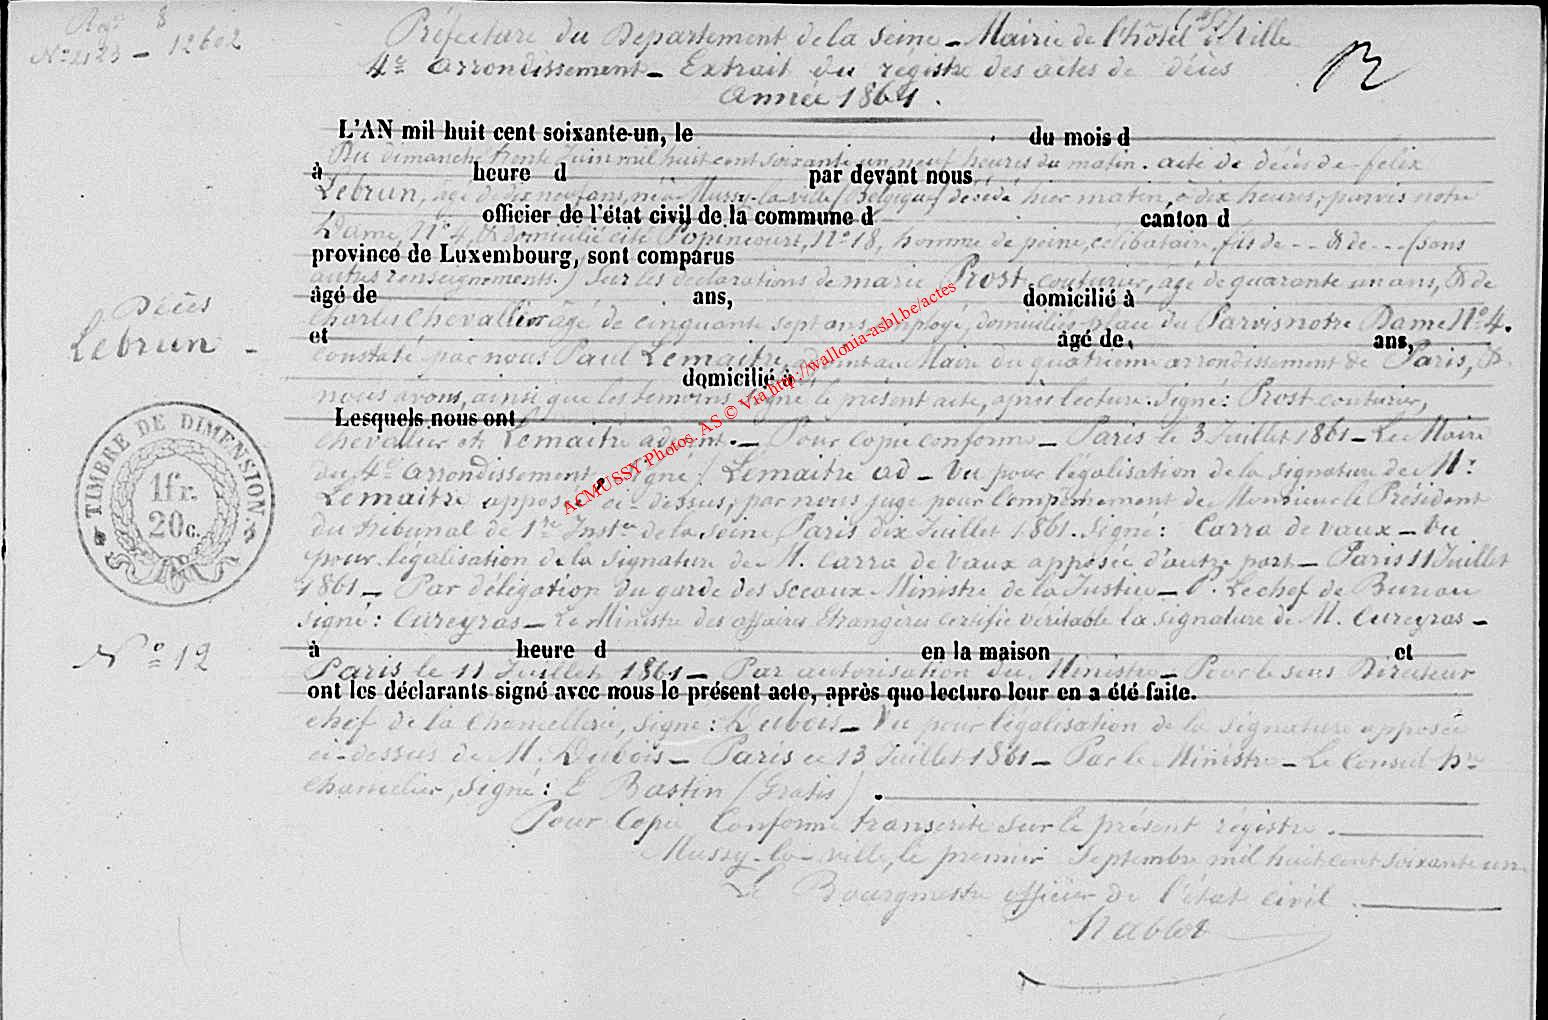 Reg. 8
N° 2123 - 12602
Préfecture du Département de la Seine - Mairie de l'hôtel de Ville
4e arrondissement - Extrait du registre des actes de décès
Année 1861.
L'AN mil huit cent soixante-un, le du mois d
Du dimanche trente Juin mil huit cent soixante un, neuf heures du matin. acte de décès de felix
à heure d par devant nous
Lebrun, âgé de dix neuf ans, né à Mussy-la-ville (Belgique) décédé hier matin, à dix heures, parvis notre
officier de l'état civil de la commune d canton d
Dame, N° 4, & domicilié cité Popincourt, N° 18, homme de peine, célibataire, fils de - - & de - - (sans
province de Luxembourg, sont comparus
autres renseignements.) Sur les déclarations de marie Prost couturier, âgé de quarante un ans, & de
âgé de ans, domicilié à
Décès
Charles Chevallier âgé de cinquante sept ans employé, domiciliés place du Parvis notre Dame N° 4.
Lebrun -
et âgé de ans,
constaté par nous Paul Lemaitre, adjoint au Maire du quatrième arrondissement de Paris, &
domicilié à
nous avons, ainsi que les témoins signé le présent acte, après lecture. Signé: Prost couturier,
Lesquels nous ont
Chevallier et Lemaitre adjoint. - Pour copie conforme - Paris le 3 Juillet 1861 - Le Maire
du 4e arrondissement signé: Lemaitre ad - Vu pour légalisation de la signature de Mr
Lemaitre apposée ci-dessus, par nous juge pour l'empêchement de Monsieur le Président
du tribunal de 1re Inst.ce de la Seine, Paris dix Juillet 1861. Signé: Carra de Vaux - Vu
pour légalisation de la signature de M. Carra de Vaux apposée d'autre part - Paris 11 Juillet
1861 - Par délégation du garde des Sceaux Ministre de la Justice - P. Le chef de Bureau
signé: Cureyras - Le Ministre des affaires Etrangères certifie véritable la signature de M. Cureyras -
à heure d en la maison et
N° 12
Paris le 11 Juillet 1861 - Par autorisation du Ministre - Pour le sous Directeur
ont les déclarants signé avec nous le présent acte, après que lecture leur en a été faite.
chef de la Chancellerie, signé: Dubois - Vu pour légalisation de la signature apposée
ci-dessus de M. Dubois - Paris ce 13 Juillet 1861 - Par le Ministre - Le Consul hre
Chancelier, signé: E Bastin (Gratis).
Pour Copie Conforme transcrite sur le présent régistre.
Mussy-la-ville, le premier Septembre mil huit cent soixante un
Le Bourgmestre officier de l'état civil
Nabbot
TIMBRE DE DIMENSION.
1 fr.
20 c.
ACMUSSY Photos. AS © Via http://wallonia-asbl.be/actes